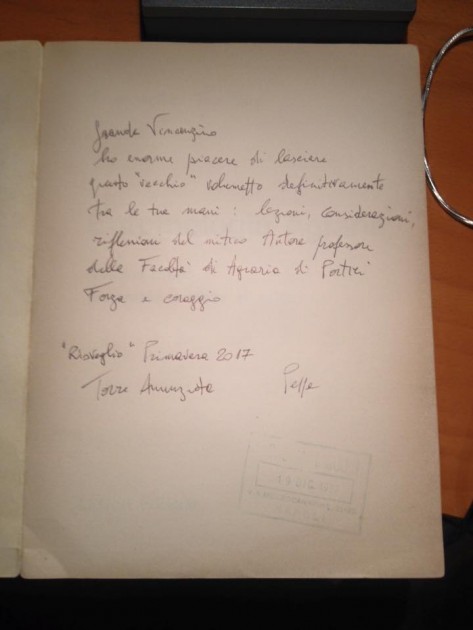 Grande Vincenzino
ho enorme piacere di lasciare
questo "vecchio" volumetto definitivamente
tra le tue mani: lezioni, considerazioni,
riflessioni del mitico Autore professore
della Facoltà di Agraria di Portici
Forza e coraggio
"Risveglio" Primavera 2017
Torre Annunziata Peppe